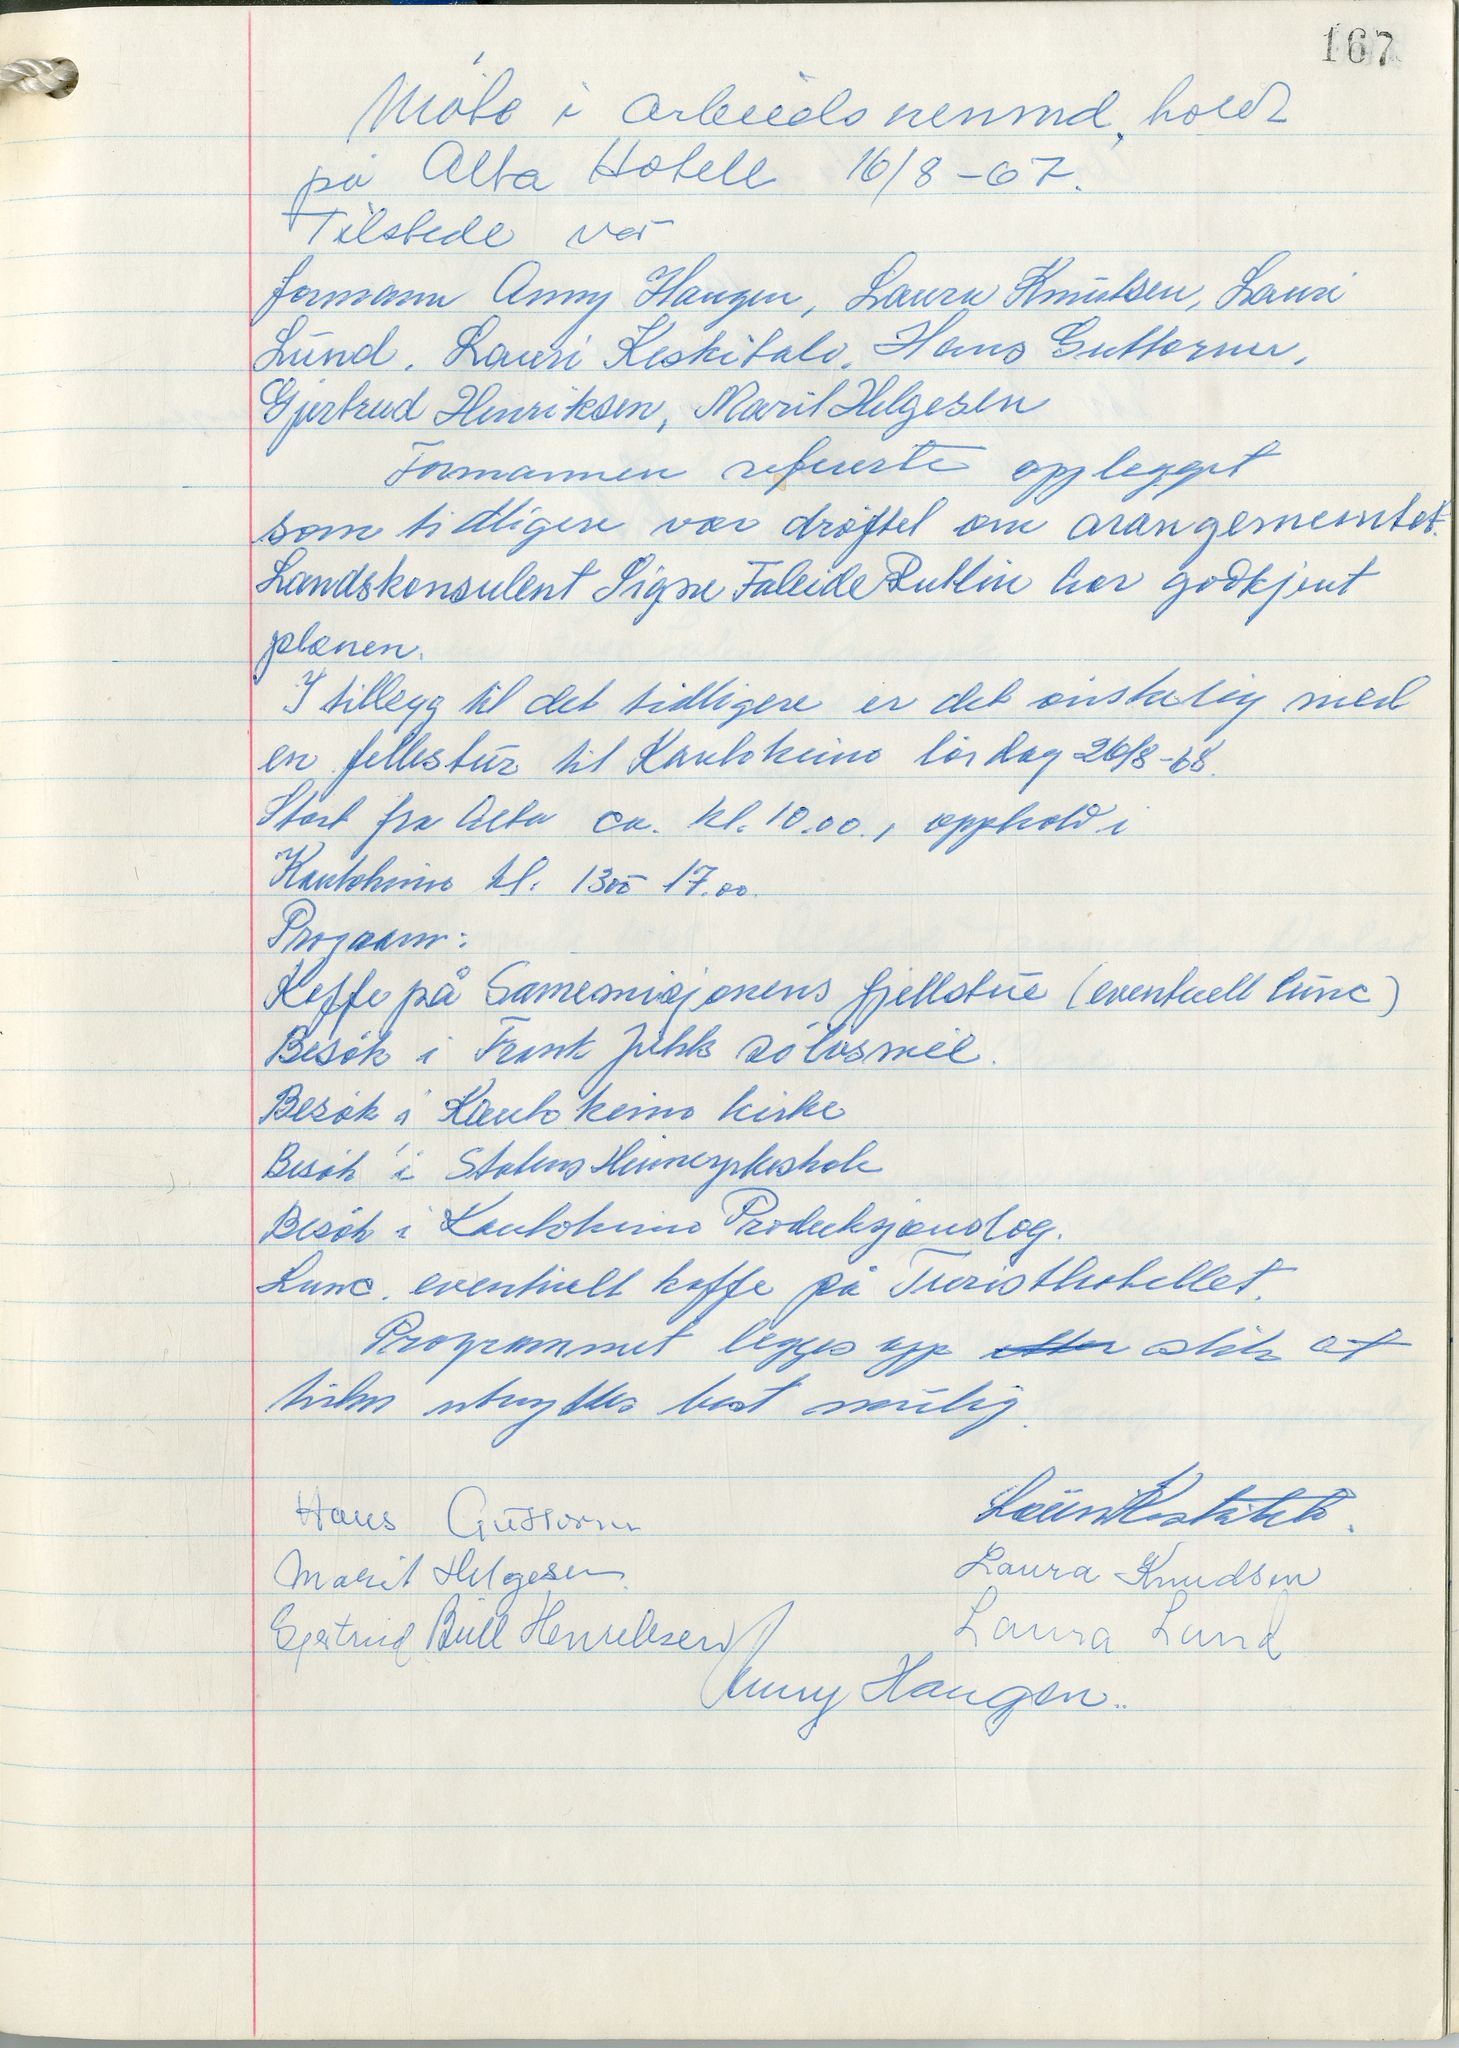 167
Møte i arbeidsnemnd, holdt
på Alta Hotell 16/8-67.
Tilstede var
formann Anny Haugen, Laura Knutsen, Laura
Lund, Lauri Keskitalo, Hans Guttorm,
Gjertrud Henriksen, Marit Helgesen
Formannen refererte opplegget
som tidligere var drøftet om arangementet.
Landskonsulent Signe Faleide har godkjent
planen.
I tillegg til det tidligere er det ønskelig med
en fellestur til Kautokeino lørdag 26/8-68.
Start fra Alta ca. kl. 10.00, opphold i
Kautokeino kl. 1300 17.00.
Program:
Kaffe på Samemisjonens fjellstue (eventuell lunc)
Besøk i Frank Juhls sølvsmie.
Besøk i Kautokeino kirke
Besøk i Statens Heimeyrkeskole
Besøk i Kautokeino Produksjonslag.
Lunc. eventuelt kaffe på Turisthotellet.
Programmet legges opp slik at
tiden utnyttes best mulig.
Hans Guttorm
Lauri Keskitalo.
Marit Helgesen
Laura Knudsen
Gjertrud Bull Henriksen
Laura Lund
Anny Haugen..